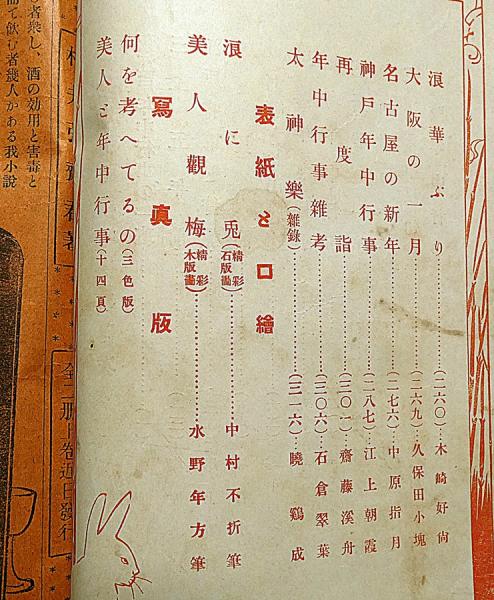 浪華ぶり……(二六〇)…木崎好尙
大阪の一月……(二六九)…久保田小塊
名古屋の新年……(二七六)…中原指月
神戸年中行事……(二八七)…江上朝霞
再度詣……(三〇一)…齋藤溪舟
年中行事雜考……(三〇六)…石倉翠葉
太神樂(雜錄)……(三一六)…曉鷄成
表紙と口繪
浪に兎(精彩石版畫)……中村不折筆
美人觀梅(精彩木版畫)……水野年方筆
寫眞版
何を考へてるの(三色版)
美人と年中行事(十四頁)
全二册一卷近日發行
者衆し、酒の効用と害毒と
て飲む者幾人かある我小說